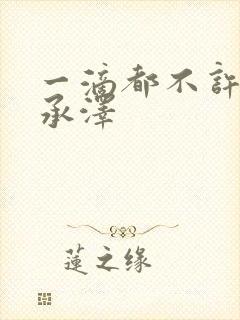 一滴都不許
承澤
蓮之缘